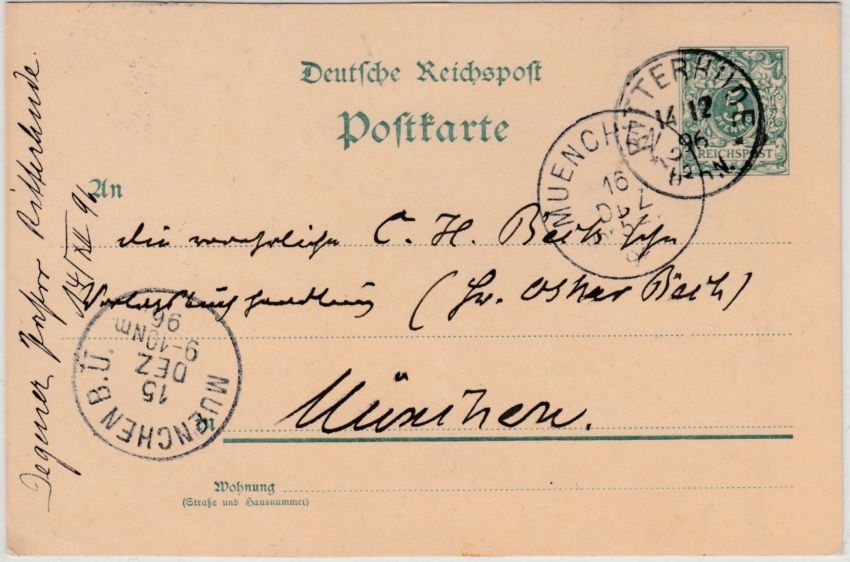 Deutsche Reichspost
Postkarte
An
die verehrliche C. H. Beck'sche
Verlagsbuchhandlung (Hr. Oskar Beck)
München.
Wohnung
(Straße und Hausnummer)
Degener Pastor Ritterhude.
14/XII 96
RITTERHUDE
14 12
96
N.
REICHSPOST
MUENCHEN
16
MUENCHEN B.Ü.
15
DEZ
9-10 Nm.
96